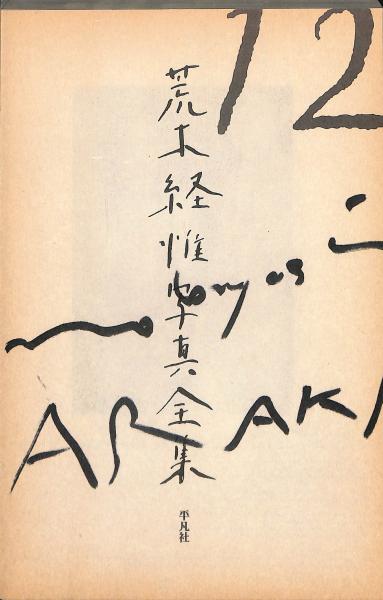 12
荒木経惟写真全集
ARAKI
平凡社